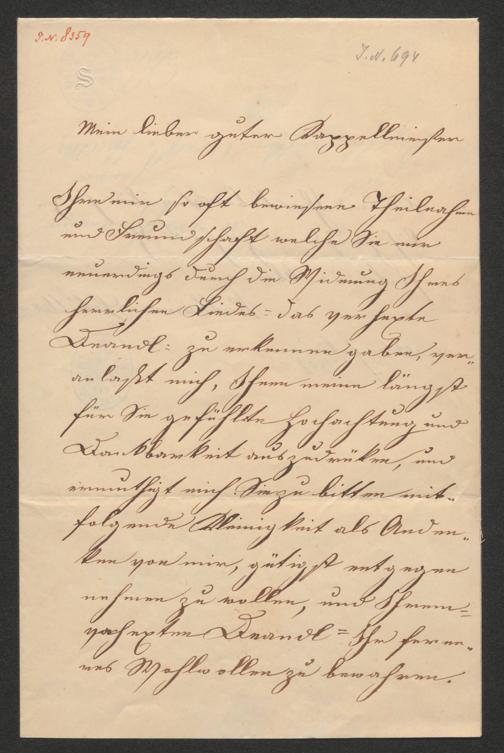 I.N. 8359
I.N. 694
S
Mein lieber guter Kappellmeister
Ihre mir so oft bewiesene Theilnahme
und Freundschaft welche Sie mir
neuerdings durch die Widmung Ihres
herrlichen Liedes = das verhexte
Deandl = zu erkennen gaben, ver„
anlaßt mich, Ihnen meine längst
für Sie gefühlte Hochachtung und
Dankbarkeit auszudrüken, und
ermuthigt mich Sie zu bitten mit„
folgende Kleinigkeit als Anden„
ken von mir, gütigst entgegen
nehmen zu wollen, und Ihrem =
verhexten Deandl = Ihr ferne„
res Wohlwollen zu bewahren.